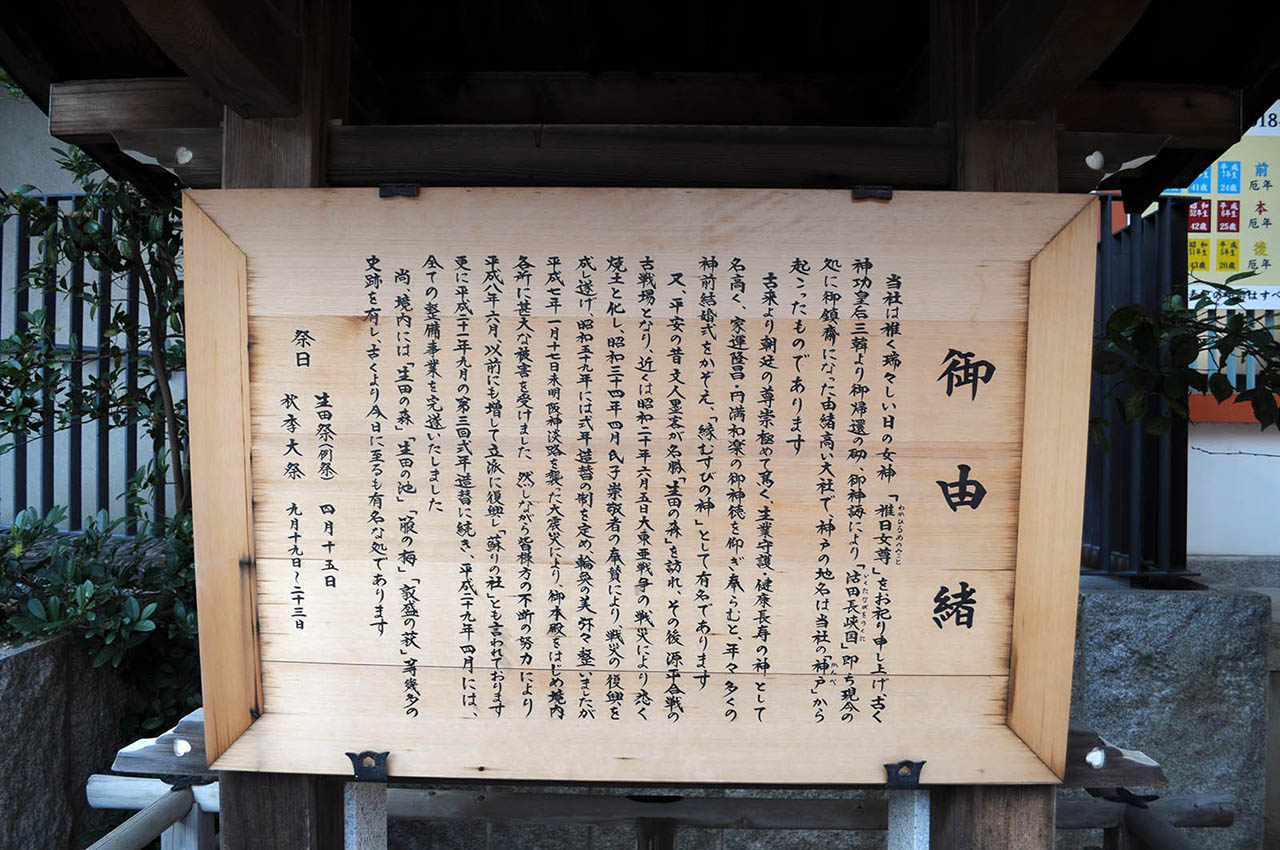 御由緒
当社は稚く瑞々しい日の女神 「稚日女尊」をお祀り申し上げ、古く
わかひるめのみこと
神功皇后三韓より御帰還の砌、御神誨により「活田長峡国」即ち現今の
いくたながをのくに
処に御鎮斎になった由緒高い大社で、神戸の地名は当社の「神戸」から
かんべ
起こったものであります
古来より朝廷の尊崇極めて篤く、生業守護、健康長寿の神として
名高く、家運隆昌・円満和楽の御神徳を仰ぎ奉らむと、年々多くの
神前結婚式をかぞえ、「縁むすびの神」として有名であります
又、平安の昔、文人墨客が名勝「生田の森」を訪れ、その後、源平合戦の
古戦場となり、近くは昭和二十年六月五日大東亜戦争の戦災により悉く
焼土と化し、昭和三十四年四月氏子崇敬者の奉賛により、戦災の復興を
成し遂げ、昭和五十九年には式年造替の制を定め、輪奐の美弥々整いましたが
平成七年一月十七日未明阪神淡路を襲った大震災により、御本殿をはじめ境内
各所に甚大な被害を受けました、然しながら皆様方の不断の努力により
平成八年六月、以前にも増して立派に復興し「蘇りの社」とも言われております
更に平成二十一年九月の第三回式年造替に続き、平成二十九年四月には、
全ての整備事業を完遂いたしました
尚、境内には「生田の森」「生田の池」「箙の梅」「敦盛の萩」等幾多の
史跡を有し、古くより今日に至るも有名な処であります
祭日 生田祭(例祭) 四月十五日
秋季大祭 九月十九日〜二十三日
18
平成7年生 24歳
前厄年
41歳
昭和52年生 42歳
平成6年生 25歳
本厄年
昭和51年生 43歳
平成5年生 26歳
後厄年
はすべ